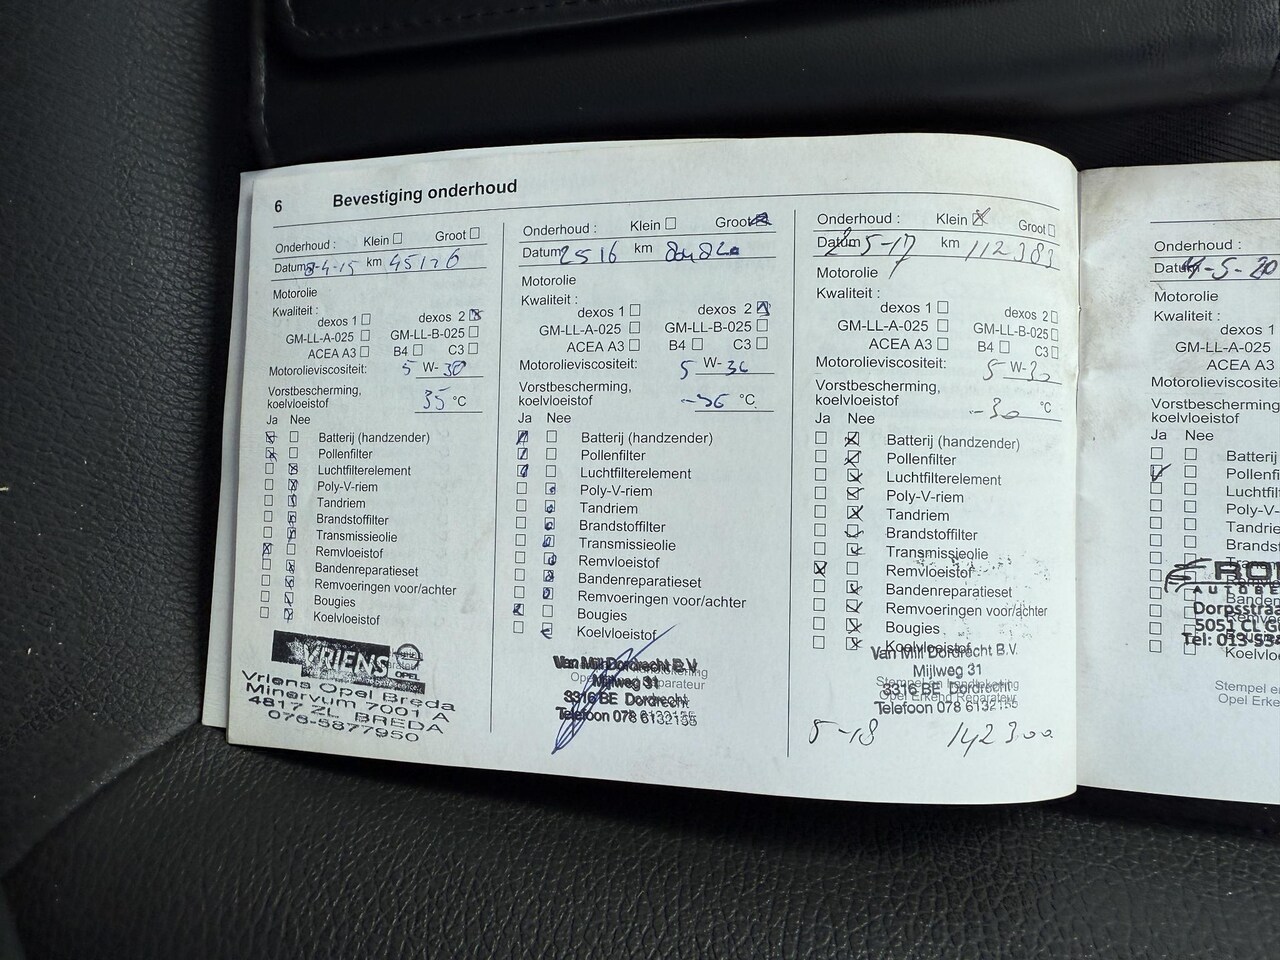 6 Bevestiging onderhoud
Onderhoud : Klein Groot
Datum 8-4-15 km 45176
Motorolie
Kwaliteit :
dexos 1 dexos 2
GM-LL-A-025 GM-LL-B-025
ACEA A3 B4 C3
Motorolieviscositeit: 5 W- 30
Vorstbescherming,
koelvloeistof 35 °C
Ja Nee
Batterij (handzender)
Pollenfilter
Luchtfilterelement
Poly-V-riem
Tandriem
Brandstoffilter
Transmissieolie
Remvloeistof
Bandenreparatieset
Remvoeringen voor/achter
Bougies
Koelvloeistof
VRIENS
OPEL
Vriens Opel Breda
Minervum 7001 A
4817 ZL BREDA
076-5877950
Onderhoud : Klein Groot
Datum 2516 km
Motorolie
Kwaliteit :
dexos 1 dexos 2
GM-LL-A-025 GM-LL-B-025
ACEA A3 B4 C3
Motorolieviscositeit: 5 W-
Vorstbescherming,
koelvloeistof -36 °C
Ja Nee
Batterij (handzender)
Pollenfilter
Luchtfilterelement
Poly-V-riem
Tandriem
Brandstoffilter
Transmissieolie
Remvloeistof
Bandenreparatieset
Remvoeringen voor/achter
Bougies
Koelvloeistof
Van Mill Dordrecht B.V.
Mijlweg 31
3316 BE Dordrecht
Telefoon 078 6132155
Onderhoud : Klein Groot
Datum 2-5-17 km 112383
Motorolie
Kwaliteit :
dexos 1 dexos 2
GM-LL-A-025 GM-LL-B-025
ACEA A3 B4 C3
Motorolieviscositeit: 5 W-30
Vorstbescherming,
koelvloeistof -30 °C
Ja Nee
Batterij (handzender)
Pollenfilter
Luchtfilterelement
Poly-V-riem
Tandriem
Brandstoffilter
Transmissieolie
Remvloeistof
Bandenreparatieset
Remvoeringen voor/achter
Bougies
Koelvloeistof
Van Mill Dordrecht B.V.
Mijlweg 31
Stempel en handtekening
3316 BE Dordrecht
Opel Erkend Reparateur
Telefoon 078 6132155
5-18 142300
Onderhoud :
Datum 4-5-20
Motorolie
Kwaliteit :
dexos 1
GM-LL-A-025
ACEA A3
Motorolieviscositei
Vorstbescherming
koelvloeistof
Ja Nee
Batterij
Pollenfi
Luchtfil
Poly-V-
Tandrie
Brandst
AUTOBE
Dorpsstraa
5051 CL G
Tel: 013-53
Koelvlo
Stempel e
Opel Erke